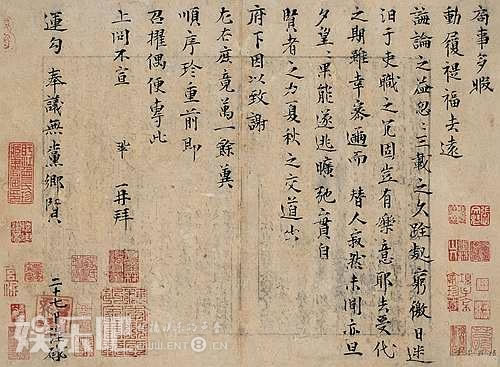 局事多暇
動履禔福去遠
誨論之益忽忽三載之久跧處窮徼日迷
汩于吏職之冗固豈有樂意耶去受代
之期雖幸密邇而替人寂然未聞亦旦
夕望望果能遂逃曠弛實自
賢者之力夏秋之交道出
府下因以致謝
左右庶竟萬一餘冀
順序珍重前即
召擢偶便專此
上問不宣 鞏再拜
運勾奉議無黨鄉賢 二十七日謹啓
娱乐吧
ENT8.CN